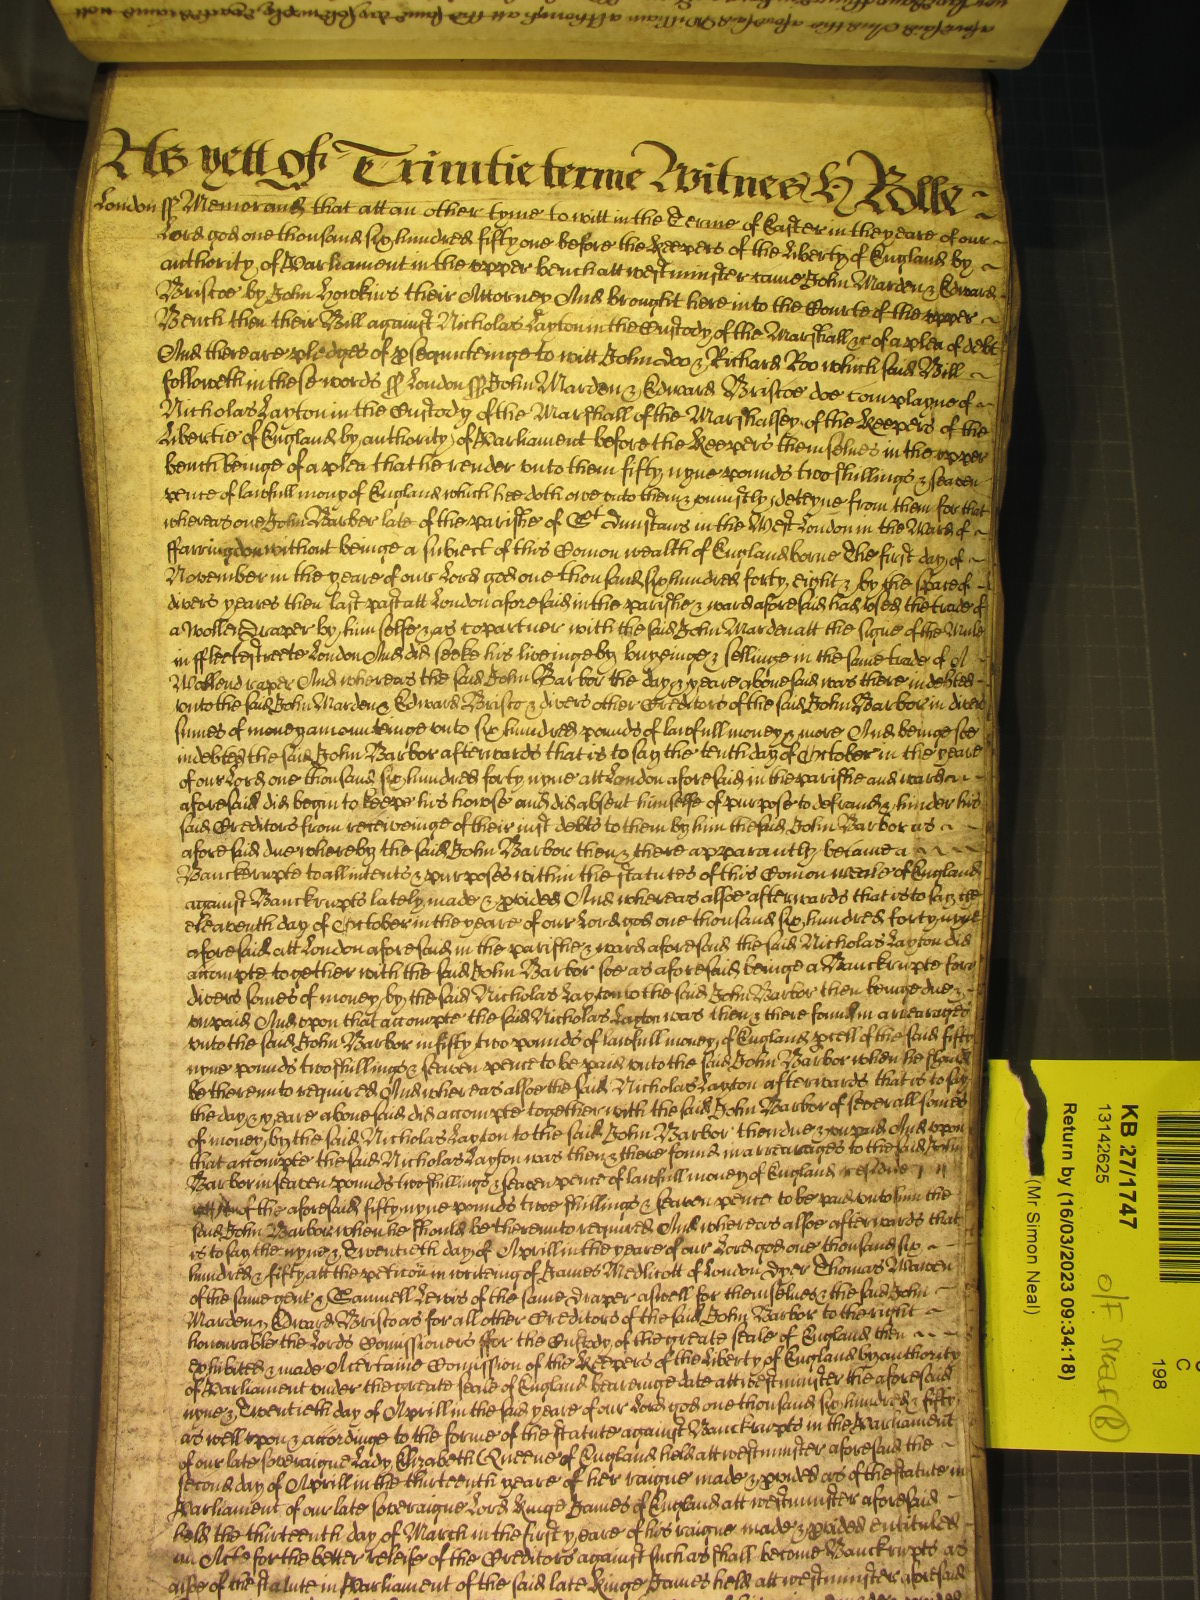 As yett of Trinitie terme Witnes H Rolle
London ss Memorand that att an other tyme to witt in the Terme of Easter in the yeare of our
Lord god one thousand six hundred fifty one before the Keepers of the Liberty of England by
authority of Parliament in the upper bench att westminster came John Marden & Edward
Briscoe by John Howkins their Attorney And brought here into the Courte of the upper
Bench then their Bill against Nicholas Layton in the Custody of the Marshall &c of a plea of debt
And there are pledges of psequuteinge to witt John doo & Richard Roo which said Bill
followeth in these words ss London ss John Marden & Edward Briscoe doe complayne of
Nicholas Layton in the Custody of the Marshall of the Marshalsey of the Keepers of the
Libertie of England by authority of Parliament before the Keepers themselves in the upper
bench beinge of a plea that he render unto them fifty nyne pounds two shillings & seaven
pence of lawfull mony of England which hee doth owe unto them & uniustly deteyne from them for that
whereas one John Barber late of the parishe of St dunstans in the West London in the Ward of
ffarringdon without beinge a subiect of this Comon wealth of England borne The first day of
November in the yeare of our Lord god one thousand six hundred forty eight & by the space of
divers yeares then last past att London aforesaid in the parishe & ward aforesaid had used the trade of
a Wollen Draper by him selfe & as copartner with the said John Marden att the signe of the Mule
in ffleetestreete London And did seeke his liveinge by buyeinge & sellinge in the same trade of A
Wollendraper And whereas the said John Barbor the day & yeare abovesaid was there indebted
unto the said John Marden & Edward Brisco & divers other Creditors of the said John Barbor in divers
sumes of money amounteinge unto six hundred pounds of lawfull money & more And beinge soe
indebted the said John Barbor afterwards that is to say the tenth day of October in the yeare
of our Lord one thousand six hundred forty nyne att London aforesaid in the parishe and ward
aforesaid did begin to keepe his howse and did absent himselfe of purpose to defraud & hinder his
said Creditors from receiveinge of their iust debts to them by him the said John Barbor as
aforesaid due whereby the said John Barbor then & there apparantly became a
Banckrupte to all intents & purposes within the statutes of this Comon weale of England
against Banckrupts lately made & pvided And whereas alsoe afterwards that is to say the
eleaventh day of October in the yeare of our Lord god one thousand six hundred forty nyne
aforesaid att London aforesaid in the parishe & ward aforesaid the said Nicholas Layton did
accompte together with the said John Barbor soe as aforesaid beinge a Banckrupte for
divers somes of money by the said Nicholas Layton to the said John Barbor then beinge due &
unpaid And upon that accompte the said Nicholas Layton was then & there found in arrearages
unto the said John Barbor in fifty two pounds of lawfull money of England pcell of the said fifty
nyne pounds two shillings & seaven pence to be paid unto the said John Barbor when he should
be thereunto required And whereas alsoe the said Nicholas Layton afterwards that is to say
the day & yeare abovesaid did accompte together with the said John Barbor of severall somes
of money by the said Nicholas Layton to the said John Barbor then due & unpaid And upon
that accompte the said Nicholas Layton was then & there found in arrearages to the said John
Barbor in seaven pounds two shillings & seaven pence of lawfull money of England residue
of the aforesaid fifty nyne pounds two shillings & seaven pence to be paid unto him the
said John Barbor when he should be thereunto required And whereas alsoe afterwards that
is to say the nyne & Twentieth day of Aprill in the yeare of our Lord god one thousand six
hundred & fifty att the peticon in writeing of James Medlicott of London Dyer Thomas
of the same gent & Samuell Lewis of the same draper aswell for themselves & the said John
Marden & Edward Brisco as for all other Creditors of the said John Barbor to the right
honourable the Lords Comissioners ffor the Custody of the greate seale of England then
exhibited & made A certaine Comission of the Keepers of the Liberty of England by authority
of Parliament under the greate seale of England beareinge date att westminster the aforesaid
nyne & Twentieth day of Aprill in the said yeare of our Lord god one thousand six hundred & fifty
as well upon & accordinge to the forme of the statute against Banckrupts in the Parliament
of our late soveraigne Lady Elizabeth Queene of England held att westminster aforesaid the
second day of Aprill in the thirteenth yeare of her raigne made & pvided as of the statute in
Parliament of our late soveraigne Lord Kinge James of England att westminster aforesaid
held the thirteenth day of March in the first yeare of his raigne made & pvided entituled
an Acte for the better releife of the Creditors against such as shall become Banckrupts as
alsoe of the statute in Parliament of the said late Kinge James held att westminster aforesaid
KB 27/1747
13142625
Return by (16/03/2023 09:34:18)
(Mr Simon Neal)
C
198